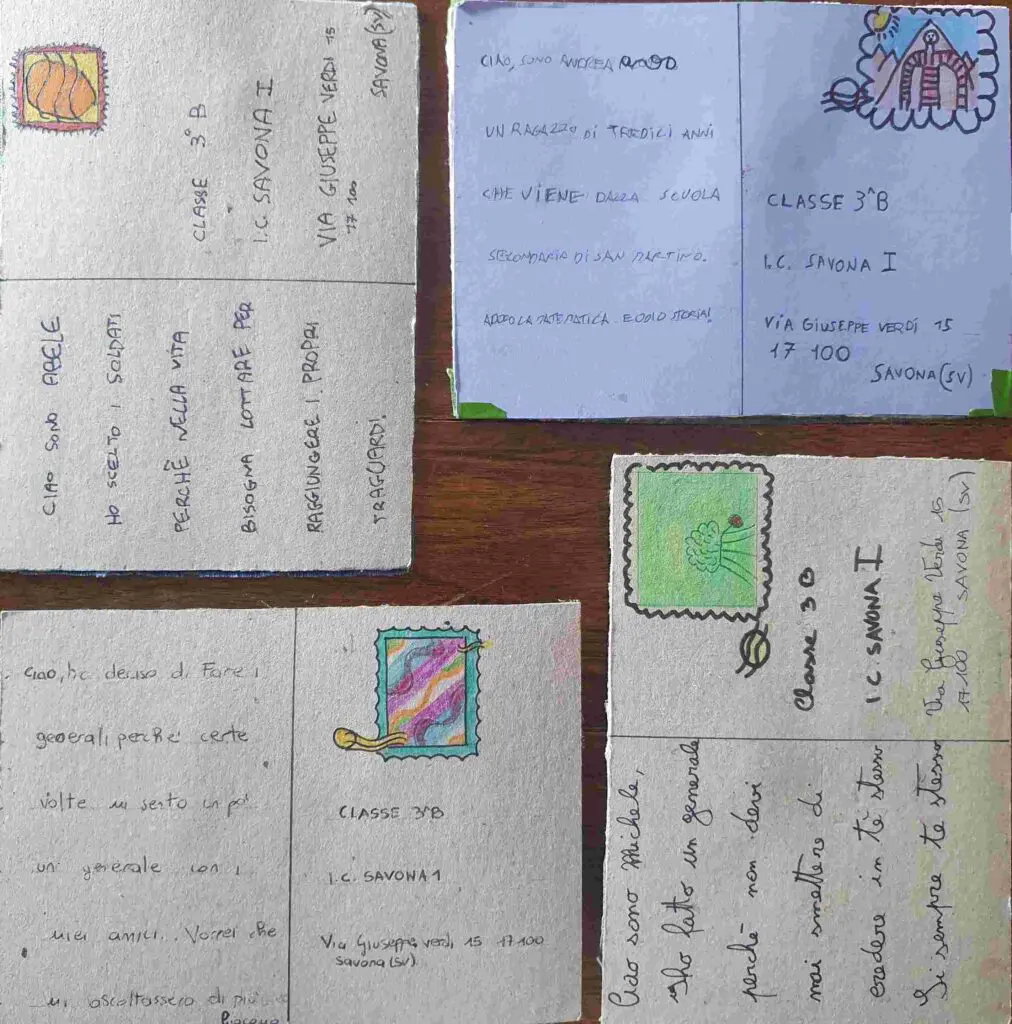 CIAO SONO ABELE
HO SCELTO I SOLDATI
PERCHÈ NELLA VITA
BISOGNA LOTTARE PER
RAGGIUNGERE I PROPRI
TRAGUARDI!
CLASSE 3°B
I.C. SAVONA I
VIA GIUSEPPE VERDI 15
17 100
SAVONA (SV)
CIAO, SONO ANDREA
UN RAGAZZO DI TREDICI ANNI
CHE VIENE DALLA SCUOLA
SECONDARIA DI SAN MARTINO.
ADORO LA MATEMATICA E ODIO STORIA!
CLASSE 3^B
I.C. SAVONA I
VIA GIUSEPPE VERDI 15
17 100
SAVONA (SV)
Ciao, ho deciso di Fare i
generali, perché certe
volte mi sento un po'
un generale con i
miei amici. Vorrei che
mi ascoltassero di più
CLASSE 3^B
I.C. SAVONA 1
Via Giuseppe verdi 15 17100
savona (SV)
Ciao sono Michele,
Ho fatto un generale
perchè non devi
mai smettere di
credere in tè stesso
Si sempre te stesso
Classe 3 B
I.C. SAVONA I
Via Giuseppe Verdi 15
17100 SAVONA (SV)